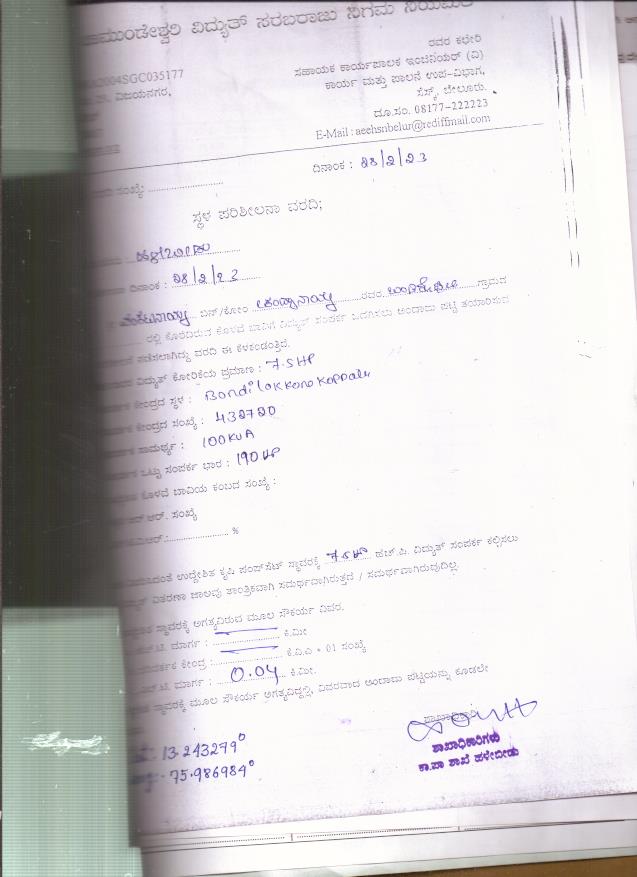 ವಿದ್ಯುತ್ ಸರಬರಾಜು ನಿಗಮ
2004SGC035177
ವಿಜಯನಗರ,
ರವರ ಕಛೇರಿ
ಸಹಾಯಕ ಕಾರ್ಯಪಾಲಕ ಇಂಜಿನಿಯರ್ (ವಿ)
ಕಾರ್ಯ ಮತ್ತು ಪಾಲನೆ ಉಪ-ವಿಭಾಗ,
ಸೆಸ್ಕ್, ಬೇಲೂರು.
ದೂ.ಸಂ. 08177-222223
E-Mail : aeehsnbelur@rediffmail.com
ದಿನಾಂಕ : 28/2/23
ಸಂಖ್ಯೆ: ..........................
ಸ್ಥಳ ಪರಿಶೀಲನಾ ವರದಿ;
ಹಳೇಬೀಡು
ದಿನಾಂಕ : 28/2/23
ಬಿನ್/ಕೋಂ ರವರ ಗ್ರಾಮದ
ರಲ್ಲಿ ಕೊರೆದಿರುವ ಕೊಳವೆ ಬಾವಿಗೆ ವಿದ್ಯುತ್ ಸಂಪರ್ಕ ಒದಗಿಸಲು ಅಂದಾಜು ಪಟ್ಟಿ ತಯಾರಿಸುವ
ವರದಿ ಈ ಕೆಳಕಂಡಂತ್ತಿದೆ.
ವಿದ್ಯುತ್ ಕೋರಿಕೆಯ ಪ್ರಮಾಣ : 7.5HP
ಕೇಂದ್ರದ ಸ್ಥಳ : Bondilakkanakoppalu
ಕೇಂದ್ರದ ಸಂಖ್ಯೆ : 432720
ಸಾಮರ್ಥ್ಯ : 100KVA
ಒಟ್ಟು ಸಂಪರ್ಕ ಭಾರ : 190HP
ಕೊಳವೆ ಬಾವಿಯ ಕಂಬದ ಸಂಖ್ಯೆ :
ಆರ್. ಸಂಖ್ಯೆ
.......................... %
ಉದ್ದೇಶಿತ ಕೃಷಿ ಪಂಪ್‌ಸೆಟ್ ಸ್ಥಾವರಕ್ಕೆ 7.5HP ಹೆಚ್.ಪಿ. ವಿದ್ಯುತ್ ಸಂಪರ್ಕ ಕಲ್ಪಿಸಲು
ವಿತರಣಾ ಜಾಲವು ತಾಂತ್ರಿಕವಾಗಿ ಸಮರ್ಥವಾಗಿರುತ್ತದೆ / ಸಮರ್ಥವಾಗಿರುವುದಿಲ್ಲ.
ಸ್ಥಾವರಕ್ಕೆ ಅಗತ್ಯವಿರುವ ಮೂಲ ಸೌಕರ್ಯ ವಿವರ.
ಮಾರ್ಗ : ಕಿ.ಮೀ
ಕೇಂದ್ರ : ಕೆ.ವಿ.ಎ * 01 ಸಂಖ್ಯೆ
ಮಾರ್ಗ : 0.04 ಕಿ.ಮೀ.
ಸ್ಥಾವರಕ್ಕೆ ಮೂಲ ಸೌಕರ್ಯ ಅಗತ್ಯವಿದ್ದಲ್ಲಿ, ವಿವರವಾದ ಅಂದಾಜು ಪಟ್ಟಿಯನ್ನು ಕೂಡಲೇ
13.243279°
75.986984°
ಶಾಖಾಧಿಕಾರಿ
ಶಾಖಾಧಿಕಾರಿಗಳು
ಕಾ.ಪಾ ಶಾಖೆ ಹಳೇಬೀಡು